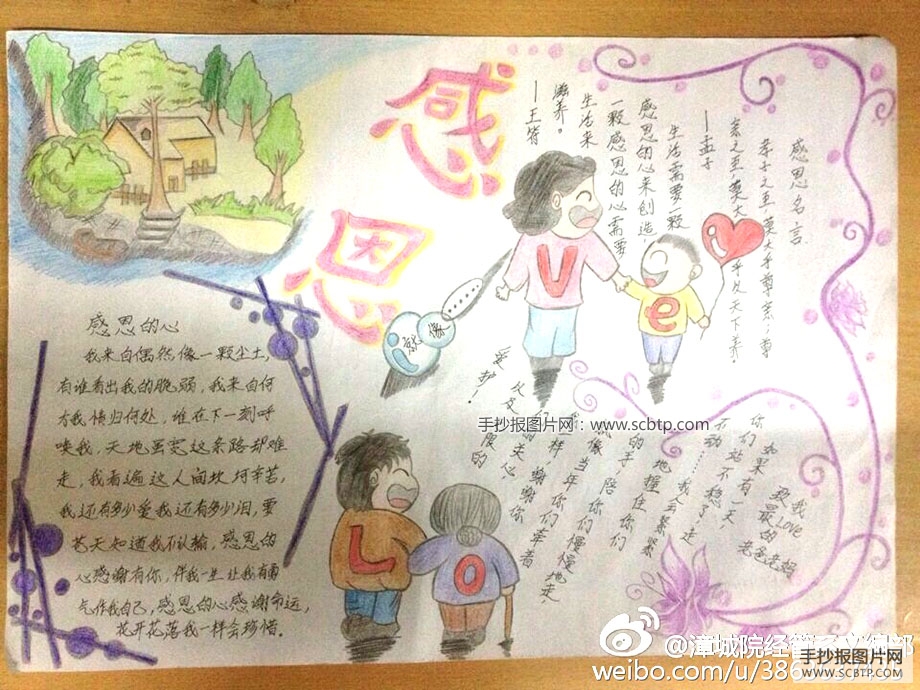 感恩
感恩名言
孝子之至,莫大乎尊亲;尊
亲之至,莫大乎以天下养。
——孟子
生活需要一颗
感恩的心来创造
一颗感恩的心需要
生活来
滋养。
——王符
VE
就像……
感恩的心
我来自偶然像一颗尘土,
有谁看出我的脆弱,我来自何
方我情归何处,谁在下一刻呼
唤我,天地虽宽这条路却难
走,我看遍这人间坎坷辛苦,
我还有多少爱我还有多少泪,要
苍天知道我不认输,感恩的
心感谢有你,伴我一生让我有勇
气作我自己,感恩的心感谢命运,
花开花落我一样会珍惜。
LO
我LOVE
老爸老妈
如果有一天
你们站不稳了走
不动……我会紧紧
地握住你们
的手,陪
像当年你们慢慢地走,
样,谢谢你们牵着
的关心,
以及
限的
爱护!
手抄报图片网:www.scbtp.com
@漳城院经管
weibo.com/u/386
手抄报图片网
WWW.SCBTP.COM